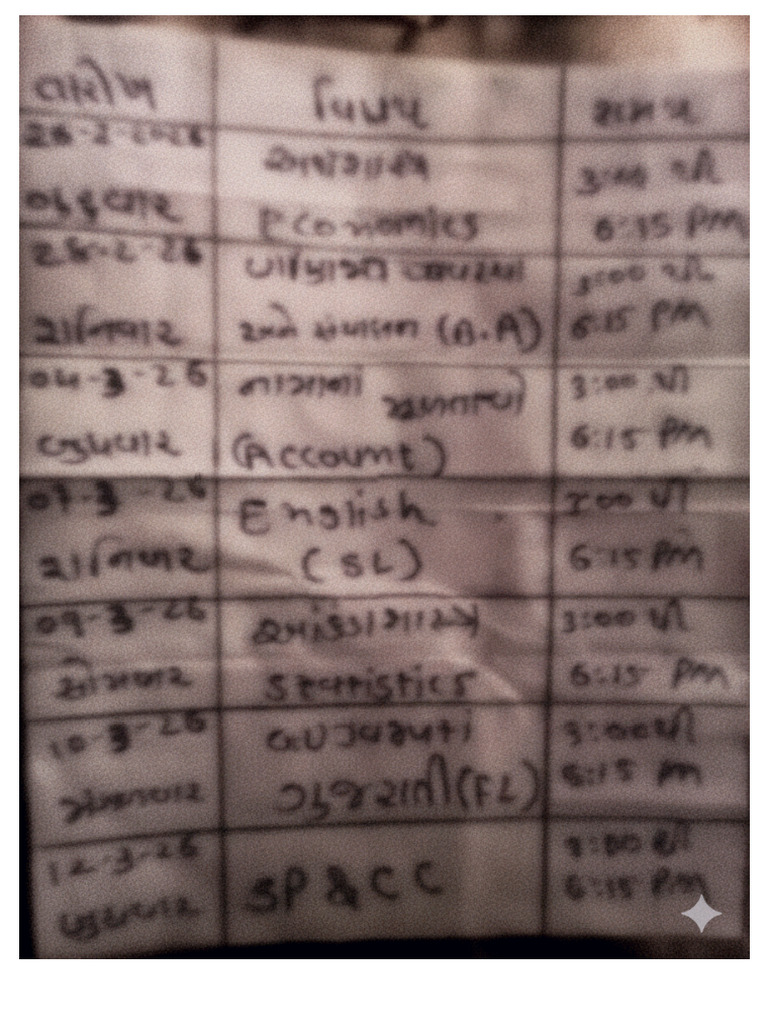 તારીખ વિષય સમય
26-2-2026 3:00 થી
Economics 6:15 PM
28-2-26 3:00 થી
શનિવાર અને સંચાલન (B.A) 6:15 PM
04-3-26 નામાનાં મૂળતત્વો 3:00 થી
બુધવાર (Account) 6:15 PM
07-3-26 English 3:00 થી
શનિવાર (SL) 6:15 PM
09-3-26 આંકડાશાસ્ત્ર 3:00 થી
સોમવાર Statistics 6:15 PM
10-3-26 3:00 થી
મંગળવાર ગુજરાતી (FL) 6:15 PM
12-3-26 SP & CC 3:00 થી
6:15 PM